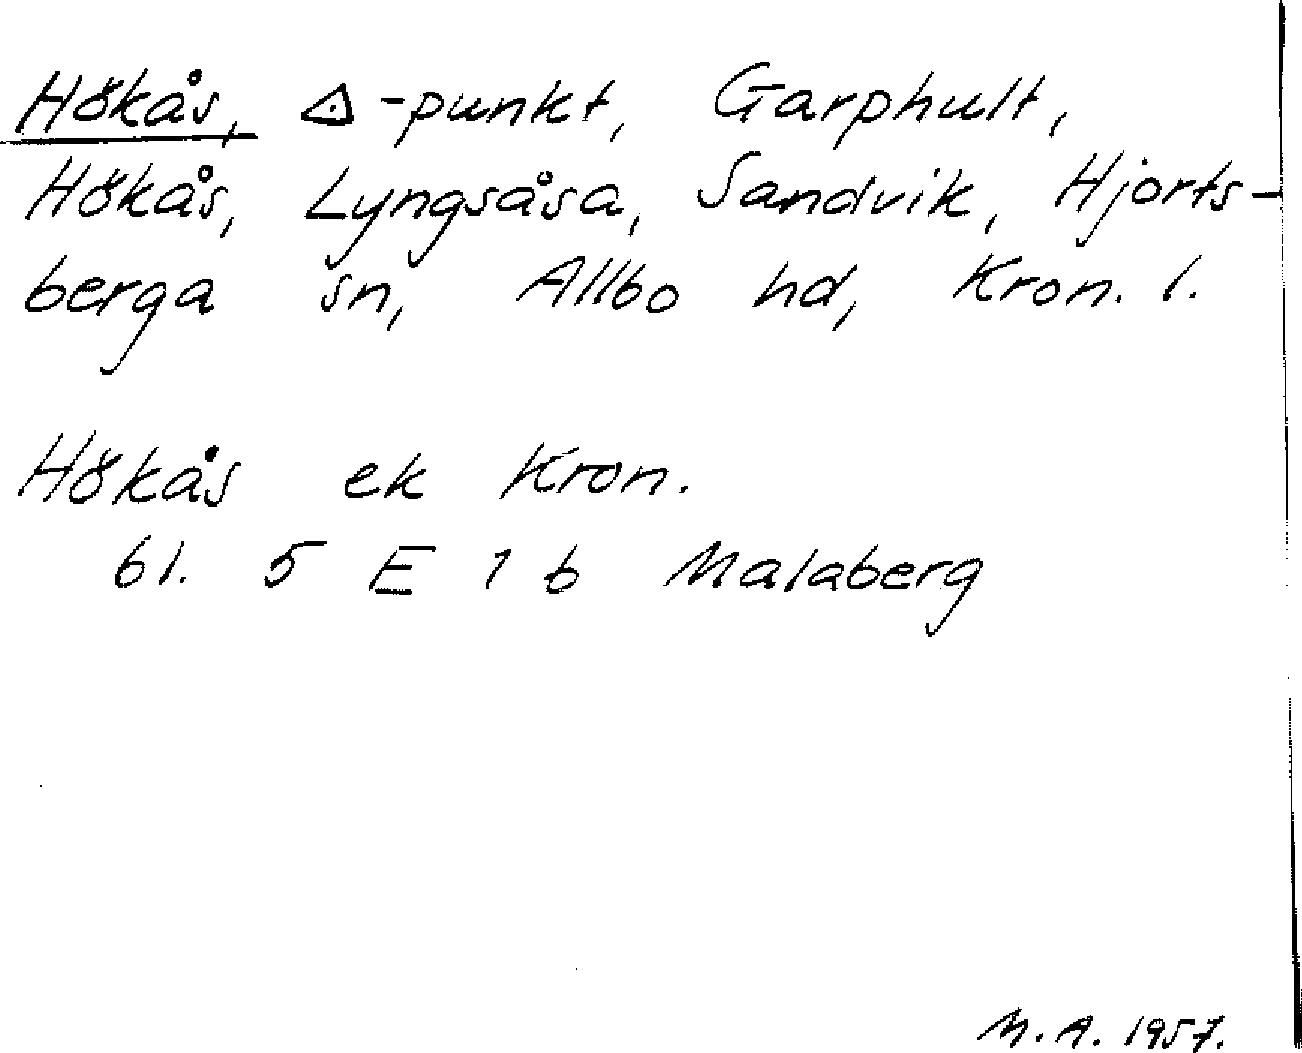 Hökås, △-punkt, Garphult,
Hökås, Lyngsåsa, Sandvik, Hjorts-
berga sn, Allbo hd, Kron. l.
Hökås ek Kron.
bl. 5 E 1 b Malaberg
M.A. 1957.